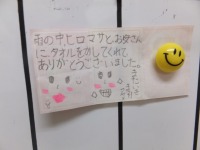 雨の中、ヒロマサとお母さん
に、タオルをかしてくれて
ありがとうございました。